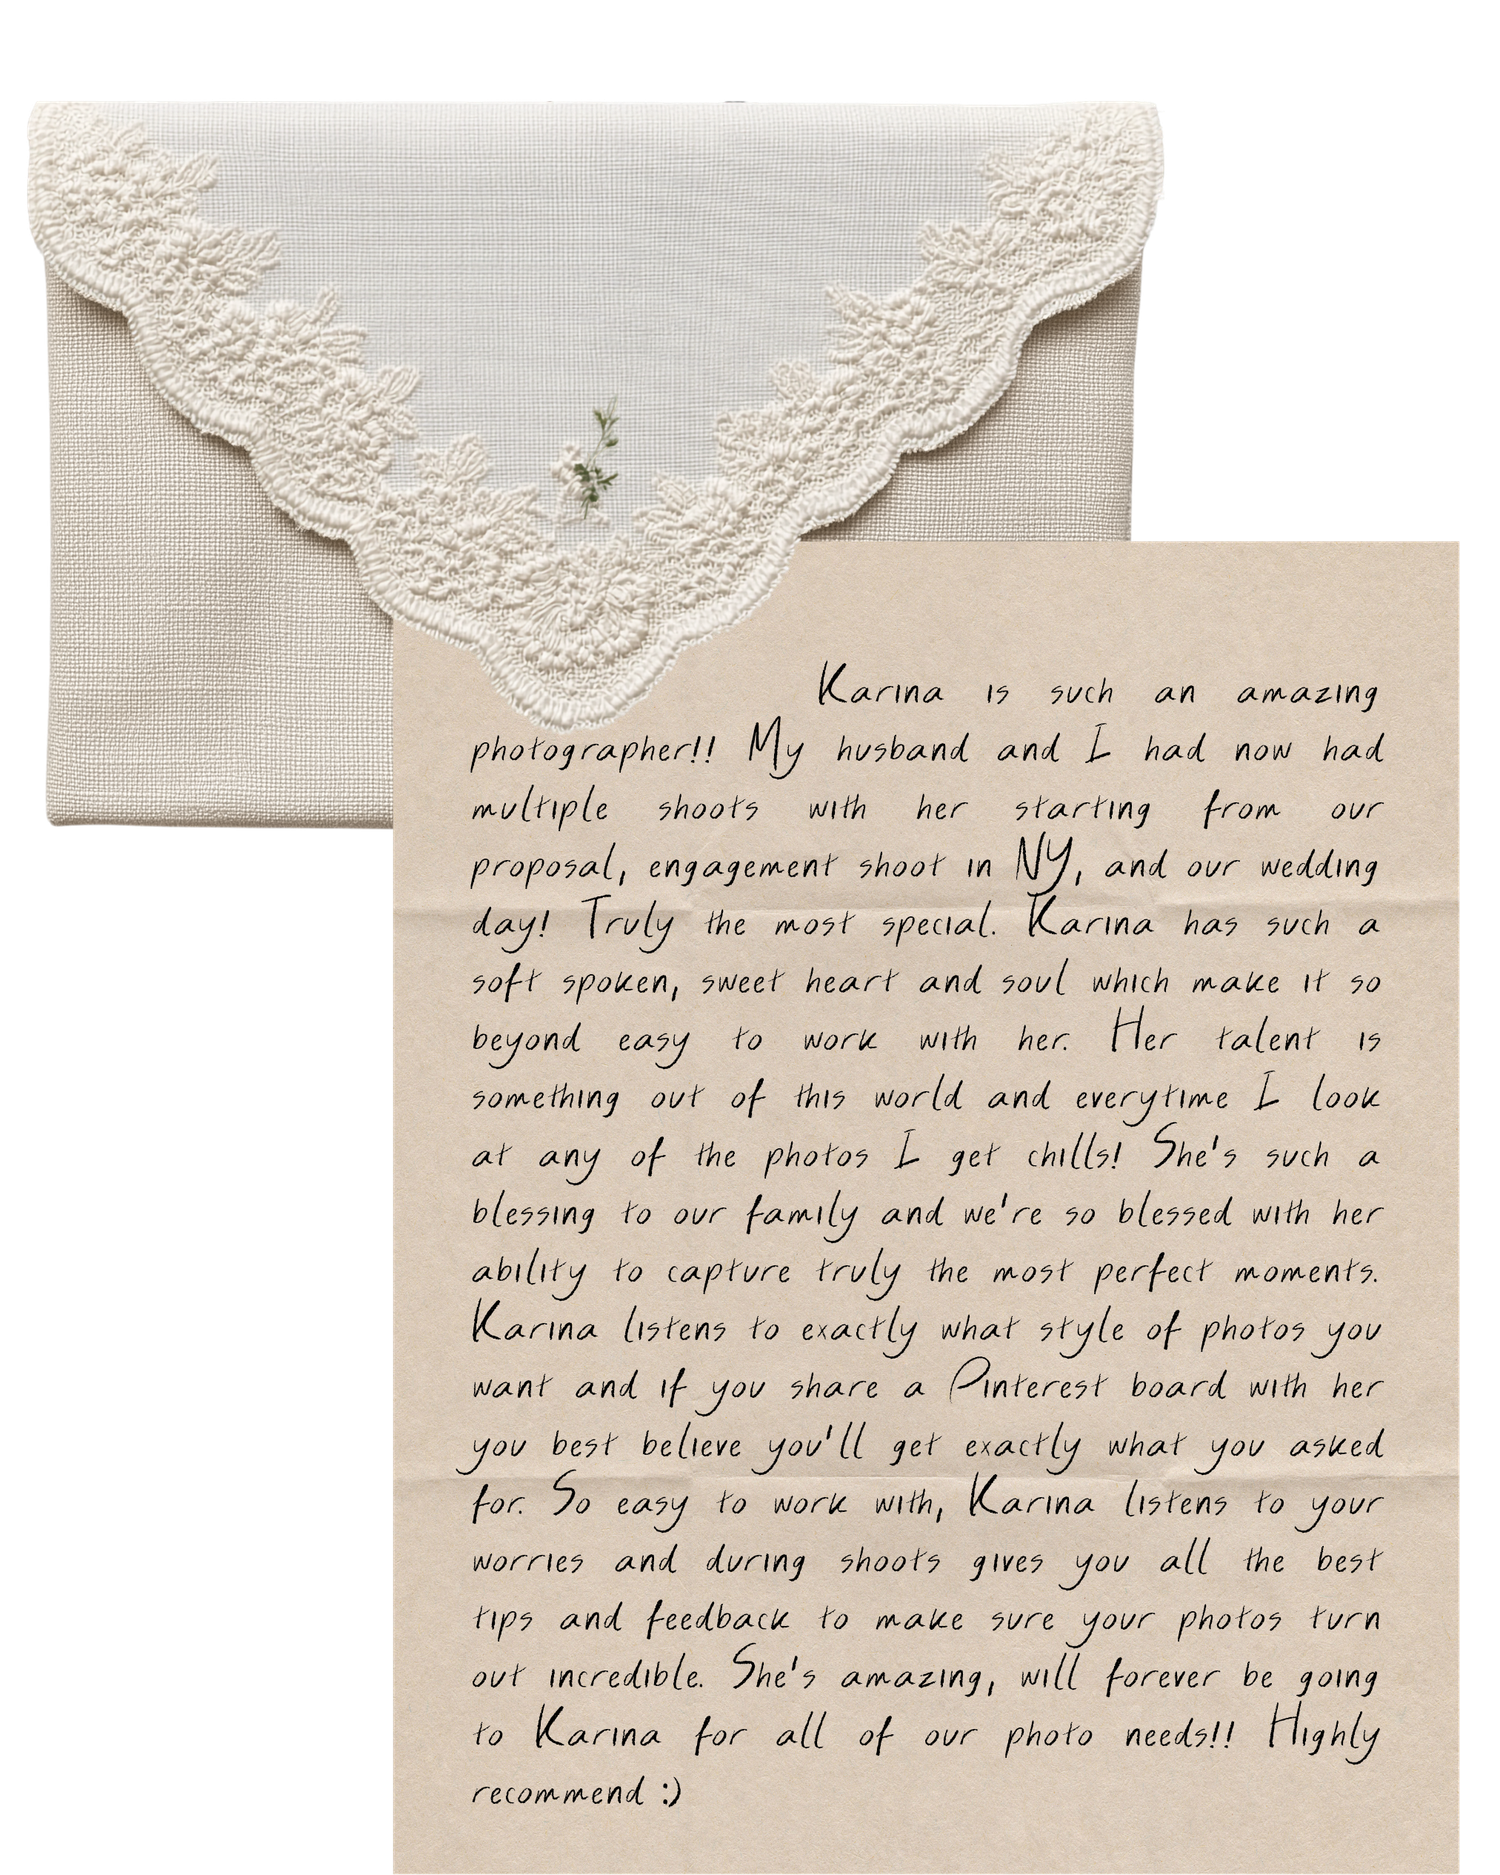 Karina is such an amazing
photographer!! My husband and I had now had
multiple shoots with her starting from our
proposal, engagement shoot in NY, and our wedding
day! Truly the most special. Karina has such a
soft spoken, sweet heart and soul which make it so
beyond easy to work with her. Her talent is
something out of this world and everytime I look
at any of the photos I get chills! She's such a
blessing to our family and we're so blessed with her
ability to capture truly the most perfect moments.
Karina listens to exactly what style of photos you
want and if you share a Pinterest board with her
you best believe you'll get exactly what you asked
for. So easy to work with, Karina listens to your
worries and during shoots gives you all the best
tips and feedback to make sure your photos turn
out incredible. She's amazing, will forever be going
to Karina for all of our photo needs!! Highly
recommend :)